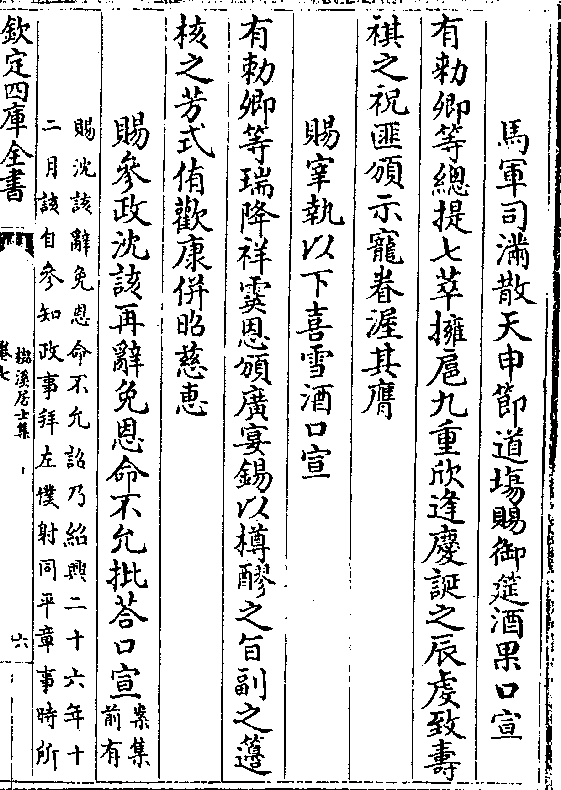 馬軍司滿散天申節道場賜御筵酒果口宣
有勅卿等總提七萃擁扈九重欣逢慶誕之辰虔致壽
祺之祝匪頒示寵眷渥其膺
賜宰執以下喜雪酒口宣
有勅卿等瑞降祥霙恩頒廣宴錫以樽醪之旨副之籩
核之芳式侑歡康併昭慈惠
賜參政沈該再辭免恩命不允批荅口宣案集前有
賜沈該辭免恩命不允詔乃紹興二十六年十
二月該自參知政事拜左僕射同平章事時所
欽定四庫全書
楳溪居士集
卷七
六